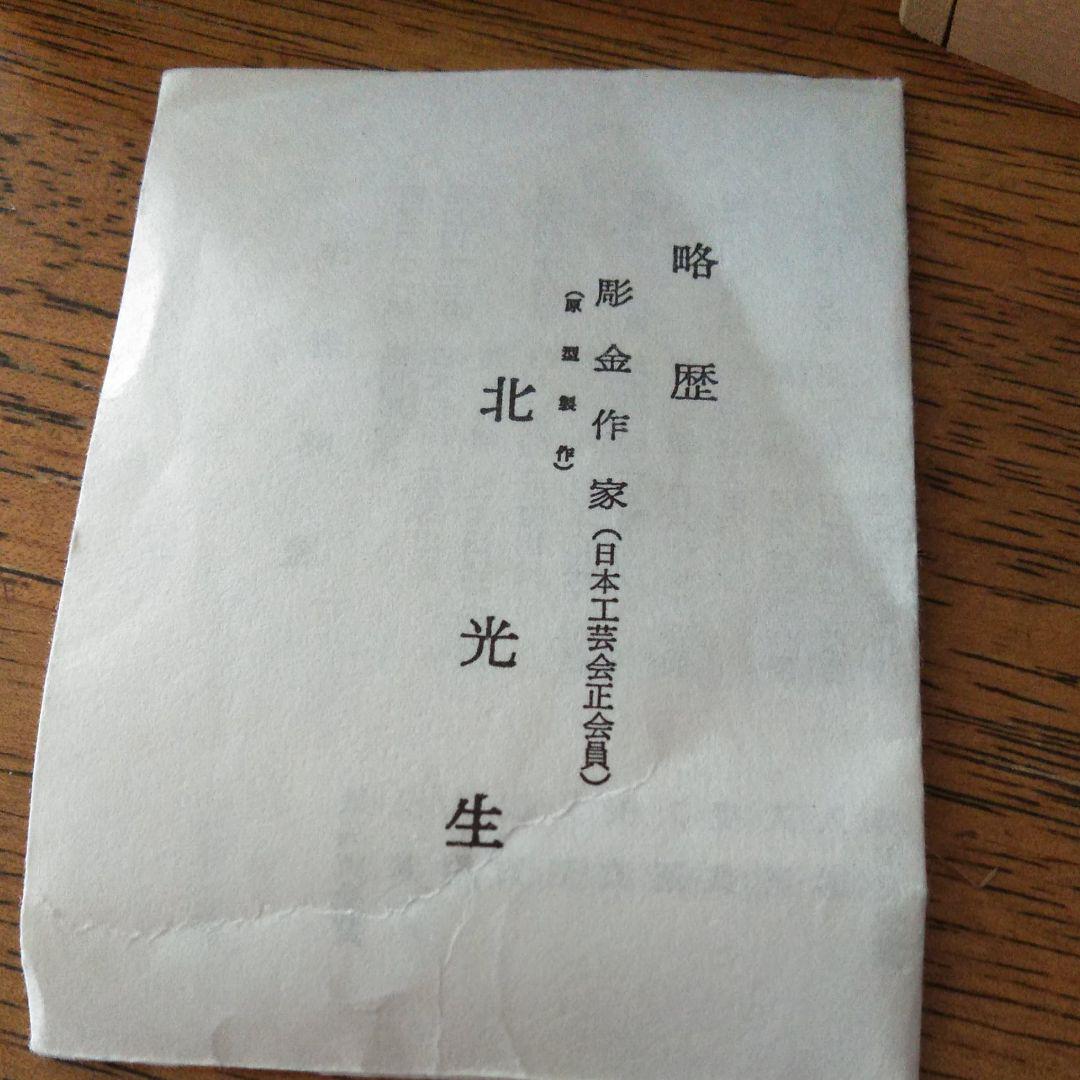 略歴
彫金作家(日本工芸会正会員)
(原型製作)
北光生